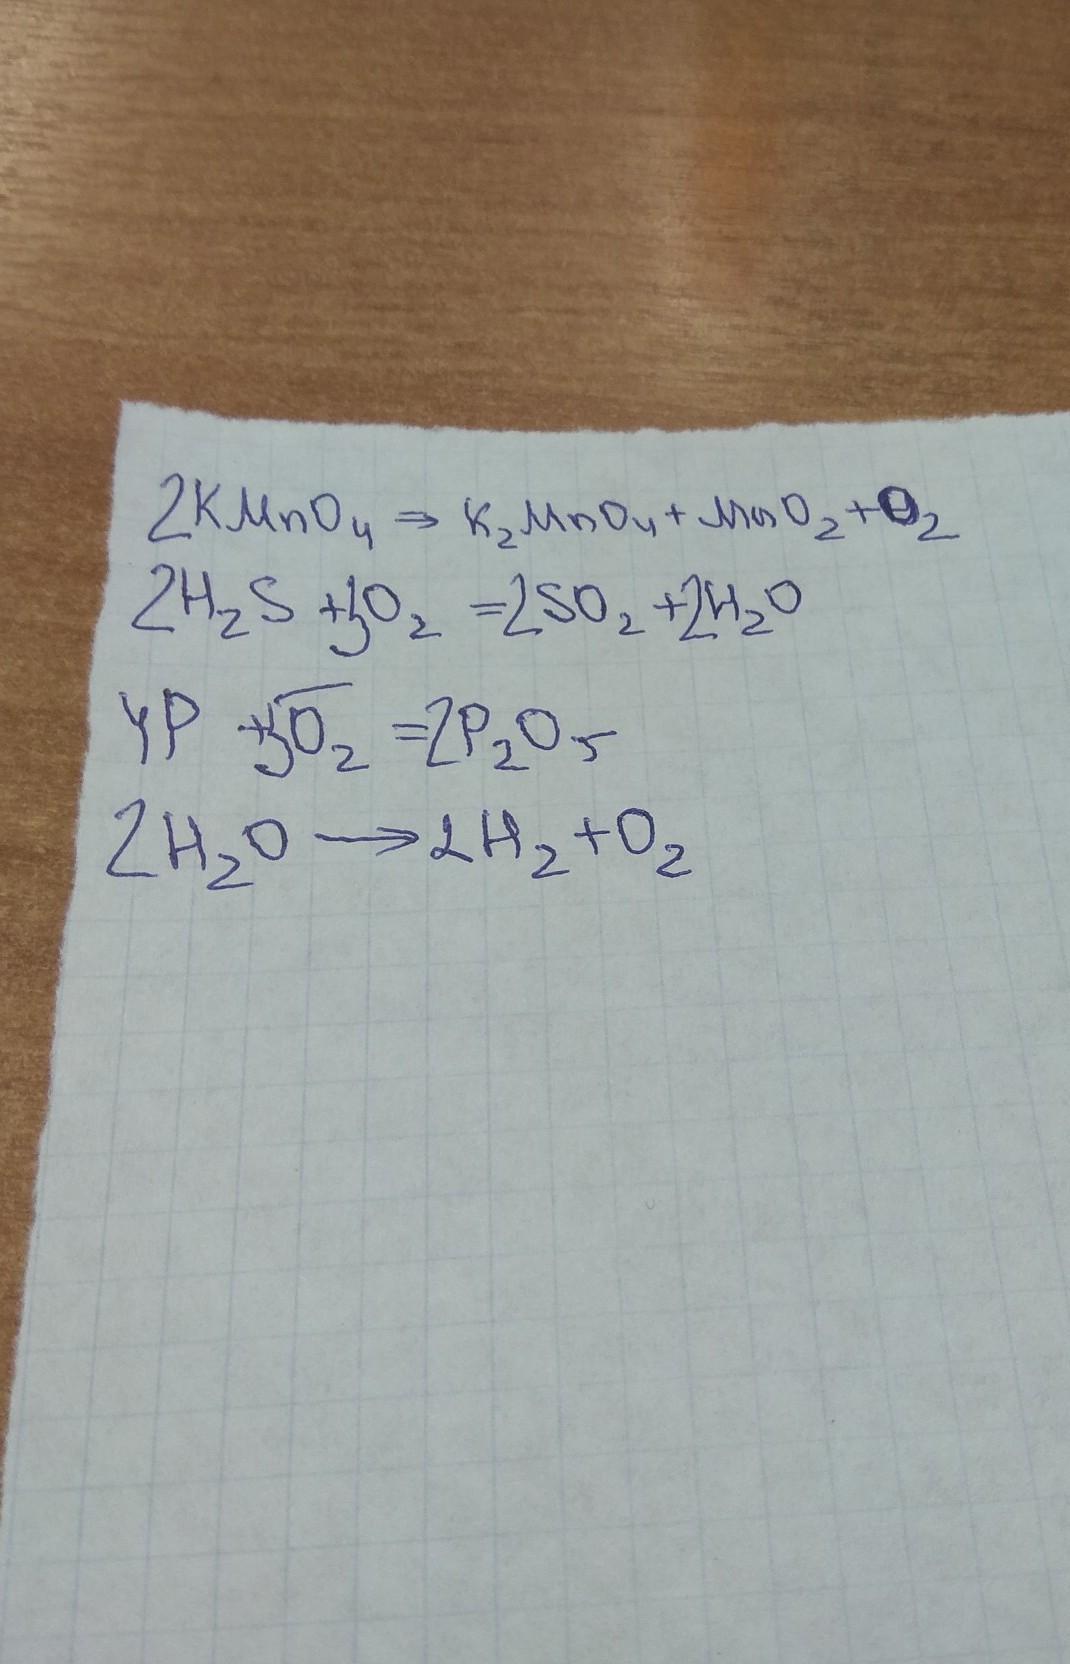 2KMnO₄ ⇒ K₂MnO₄ + MnO₂ + O₂
2H₂S + 3O₂ = 2SO₂ + 2H₂O
4P + 5O₂ = 2P₂O₅
2H₂O → 2H₂ + O₂